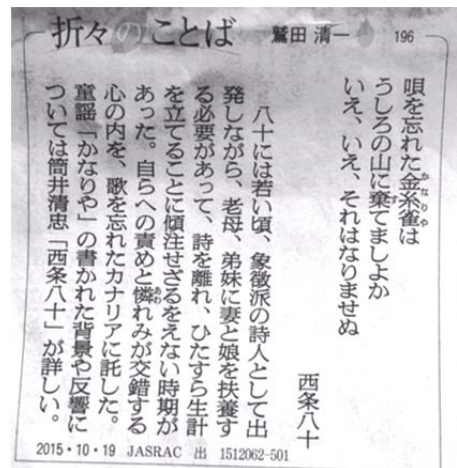 折々のことば 鷲田 清一 196
唄を忘れた金糸雀は
うしろの山に棄てましよか
いえ、いえ、それはなりませぬ
西条八十
八十には若い頃、象徴派の詩人として出
発しながら、老母、弟妹に妻と娘を扶養す
る必要があって、詩を離れ、ひたすら生計
を立てることに傾注せざるをえない時期が
あった。自らへの責めと憐れみが交錯する
心の内を、歌を忘れたカナリアに託した。
童謡「かなりや」の書かれた背景や反響に
ついては筒井清忠「西条八十」が詳しい。
2015・10・19 JASRAC 出 1512062-501